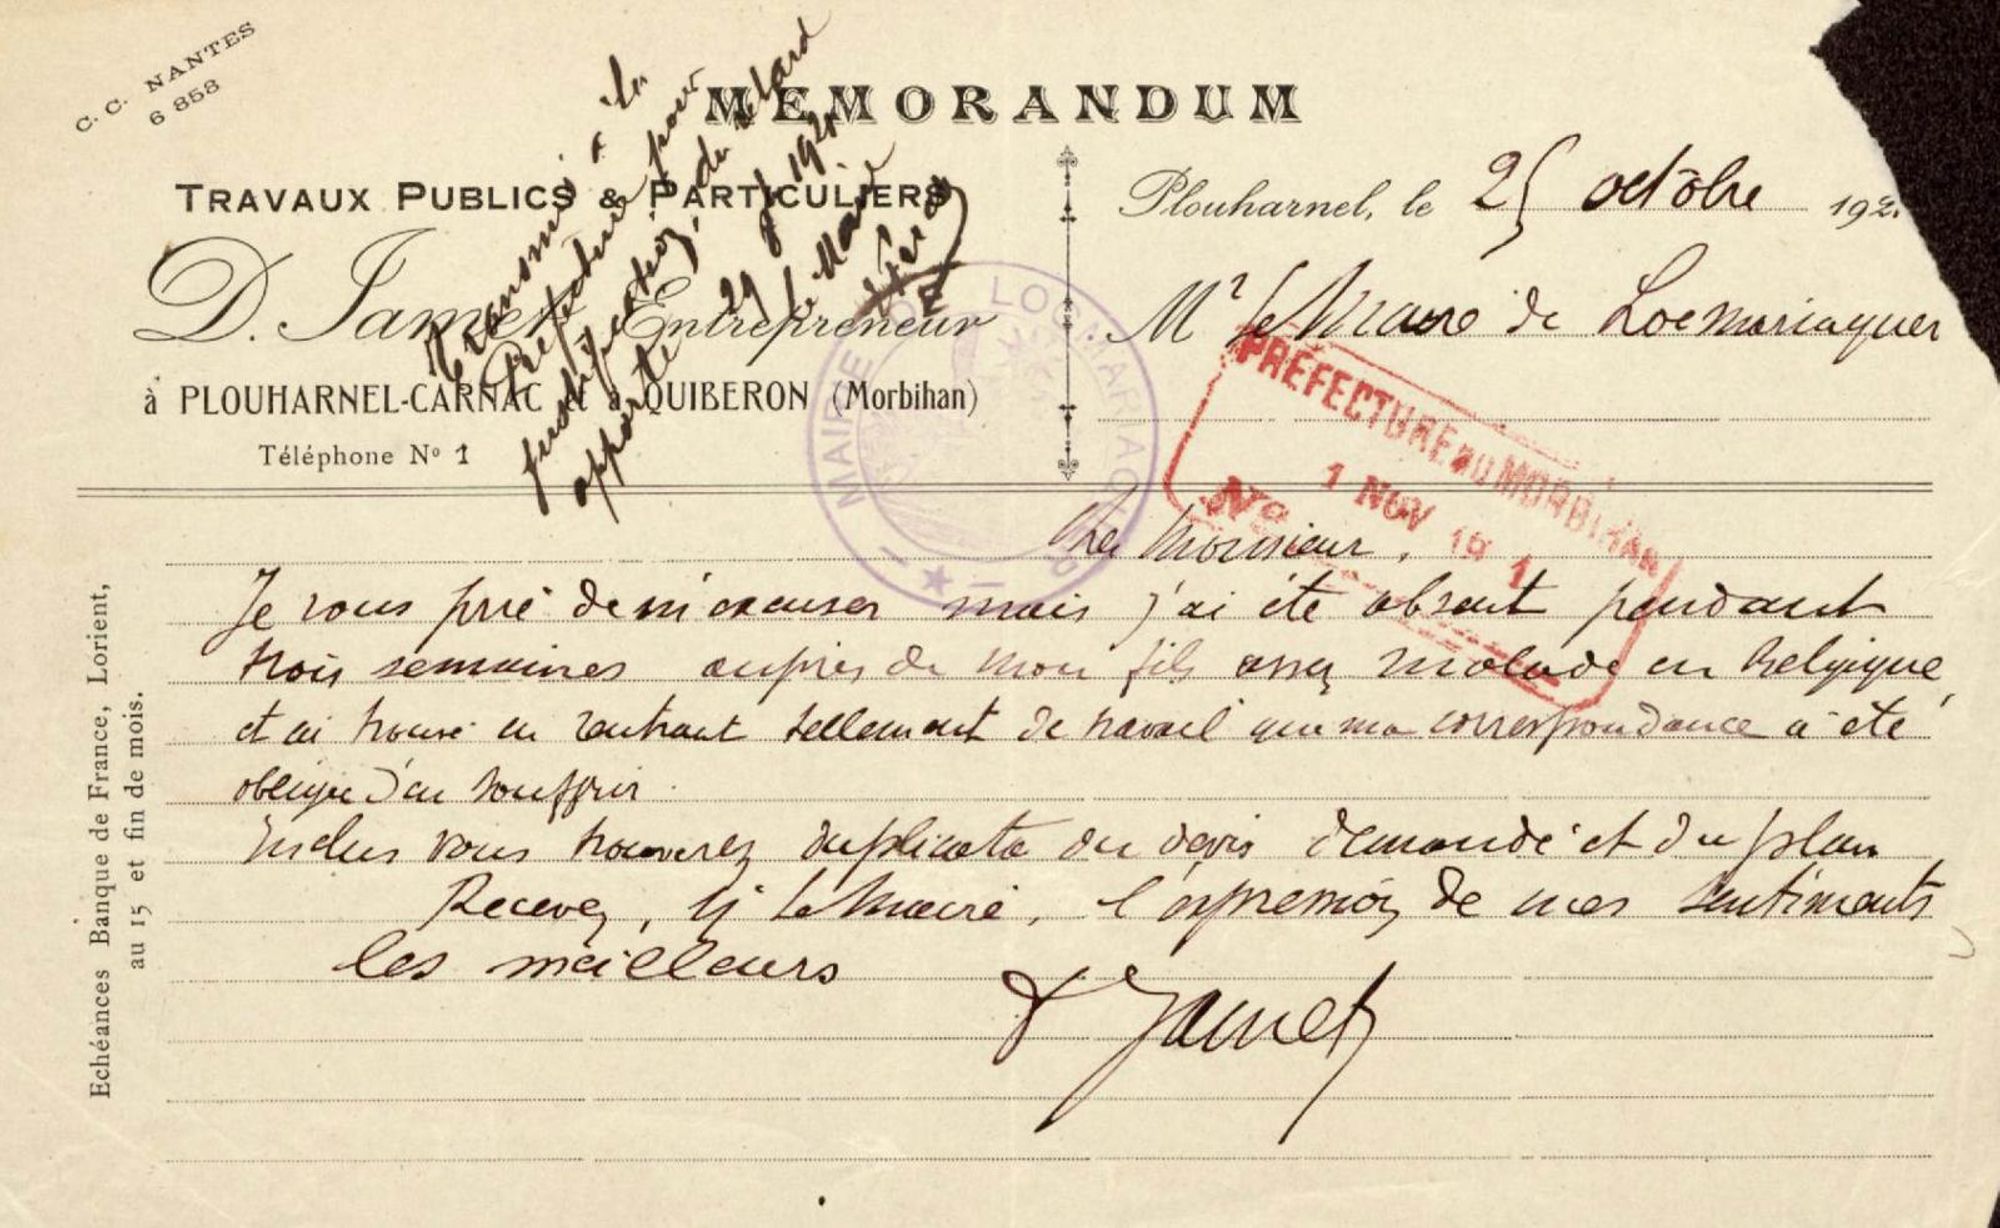 C. C. NANTES
6 858
MEMORANDUM
TRAVAUX PUBLICS & PARTICULIERS
D. Jamet Entrepreneur
à PLOUHARNEL-CARNAC & à QUIBERON (Morbihan)
Téléphone Nº 1
Transmis à la
Préfecture pour
justification du retard
apporté
29 1921
Le Maire
Plouharnel, le 25 octobre 192
Mr le Maire de Locmariaquer
MAIRIE DE LOCMARIAQUER
PRÉFECTURE DU MORBIHAN
1 NOV 19 1
No
Monsieur,
Je vous prie de m'excuser mais j'ai été absent pendant
trois semaines auprès de mon fils assez malade en Belgique
et ai trouvé en rentrant tellement de travail que ma correspondance a été
obligée d'en souffrir.
Inclus vous trouverez duplicata du devis demandé et du plan
Recevez, Mr le Maire, l'expression de mes sentiments
les meilleurs
D Jamet
Echéances Banque de France, Lorient,
au 15 et fin de mois.